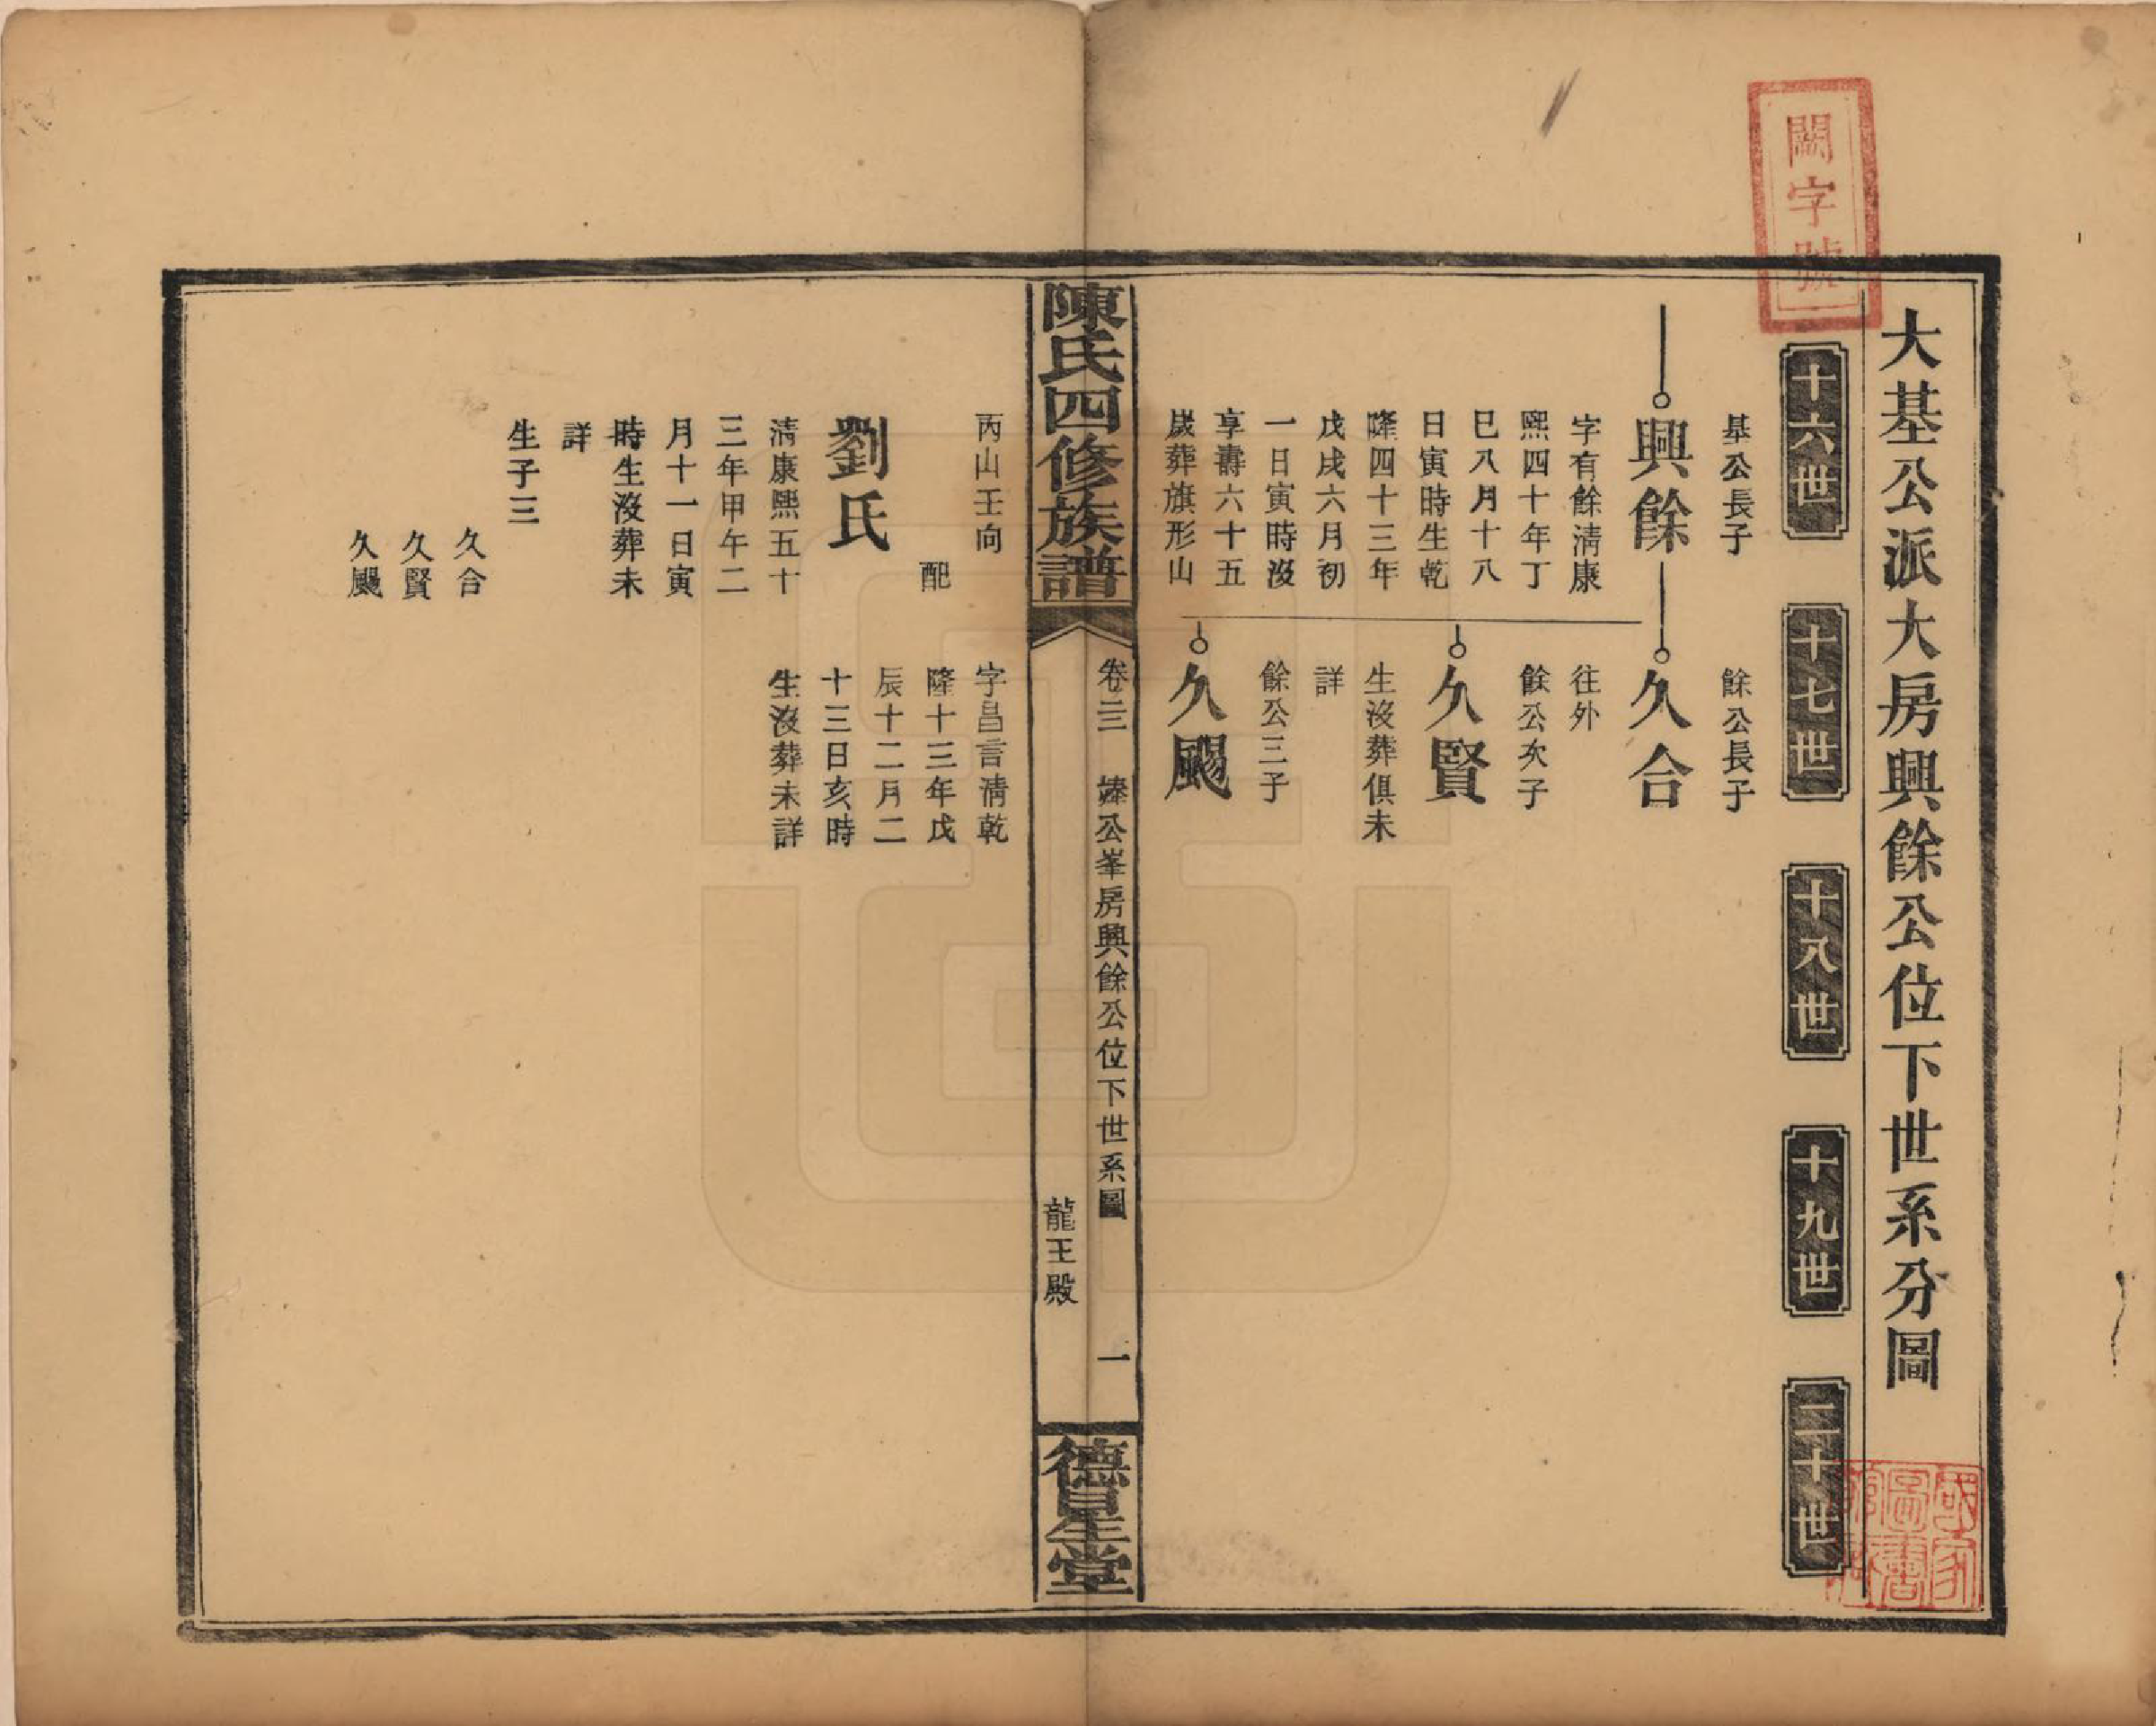 闕字號
大基公派大房興餘公位下世系分圖
十六世
十七世
十八世
十九世
二十世
基公長子
興餘
字有餘淸康
熙四十年丁
巳八月十八
日寅時生乾
隆四十三年
戊戌六月初
一日寅時沒
享壽六十五
歲葬旗形山
丙山壬向
配
劉氏
淸康熙五十
三年甲午二
月十一日寅
時生沒葬未
詳
生子三
久合
久賢
久颺
餘公長子
久合
往外
餘公次子
久賢
生沒葬俱未
詳
餘公三子
久颺
字昌言淸乾
隆十三年戊
辰十二月二
十三日亥時
生沒葬未詳
陳氏四修族譜
卷三
公峯房興餘公位下世系圖
龍王殿
一
德星堂
國家
圖書